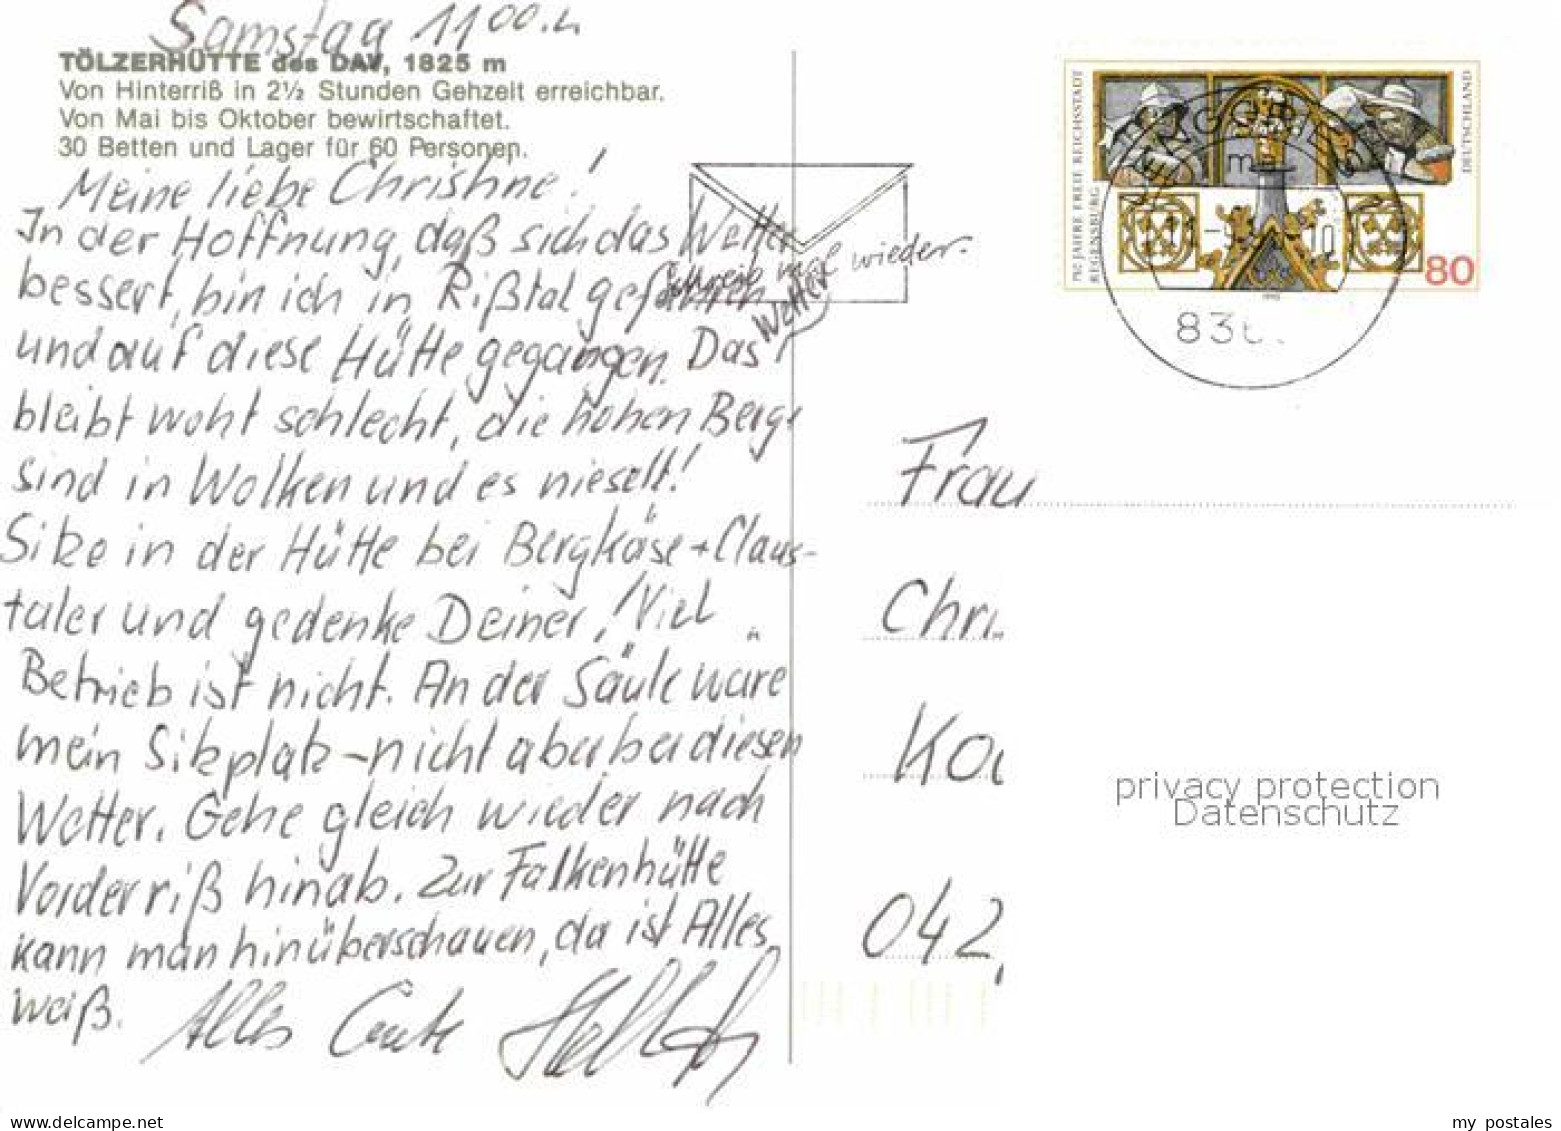 Samstag 11 00 h
TÖLZERHÜTTE des DAV, 1825 m
Von Hinterriß in 2½ Stunden Gehzeit erreichbar.
Von Mai bis Oktober bewirtschaftet.
30 Betten und Lager für 60 Personen.
Meine liebe Christine!
In der Hoffnung, daß sich das Wetter
bessert, bin ich in Rißtal gefahren
und auf diese Hütte gegangen. Das Wetter
bleibt wohl schlecht, die hohen Berge
sind in Wolken und es nieselt!
Sitze in der Hütte bei Bergkäse + Claus-
taler und gedenke Deiner! Viel
Betrieb ist nicht. An der Säule wäre
mein Sitzplatz - nicht aber bei diesen
Wetter. Gehe gleich wieder nach
Vorderriß hinab. Zur Falkenhütte
kann man hinüberschauen, da ist Alles
weiß. Alles Gute
Schreib mal wieder.
750 JAHRE FREIE REICHSSTADT
REGENSBURG
DEUTSCHLAND
80
1995
10
836
Frau
Chri
Ko
042
privacy protection
Datenschutz
my postales